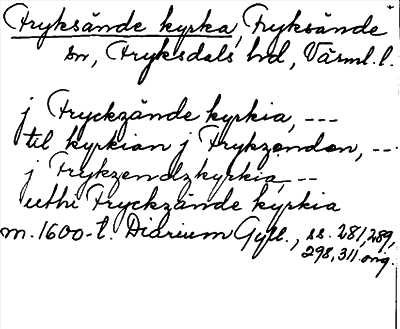 Fryksände kyrka, Fryksände
sn, Fryksdals hd, Värml. l.
j Fryckzände kyrkia, ---
til kyrkian j Frykzenden, --
j Frykzendzkyrkia, --
uthi Fryckzände kyrkia
m. 1600-t. Diarium Gyll., ss. 281, 289,
298, 311 orig.